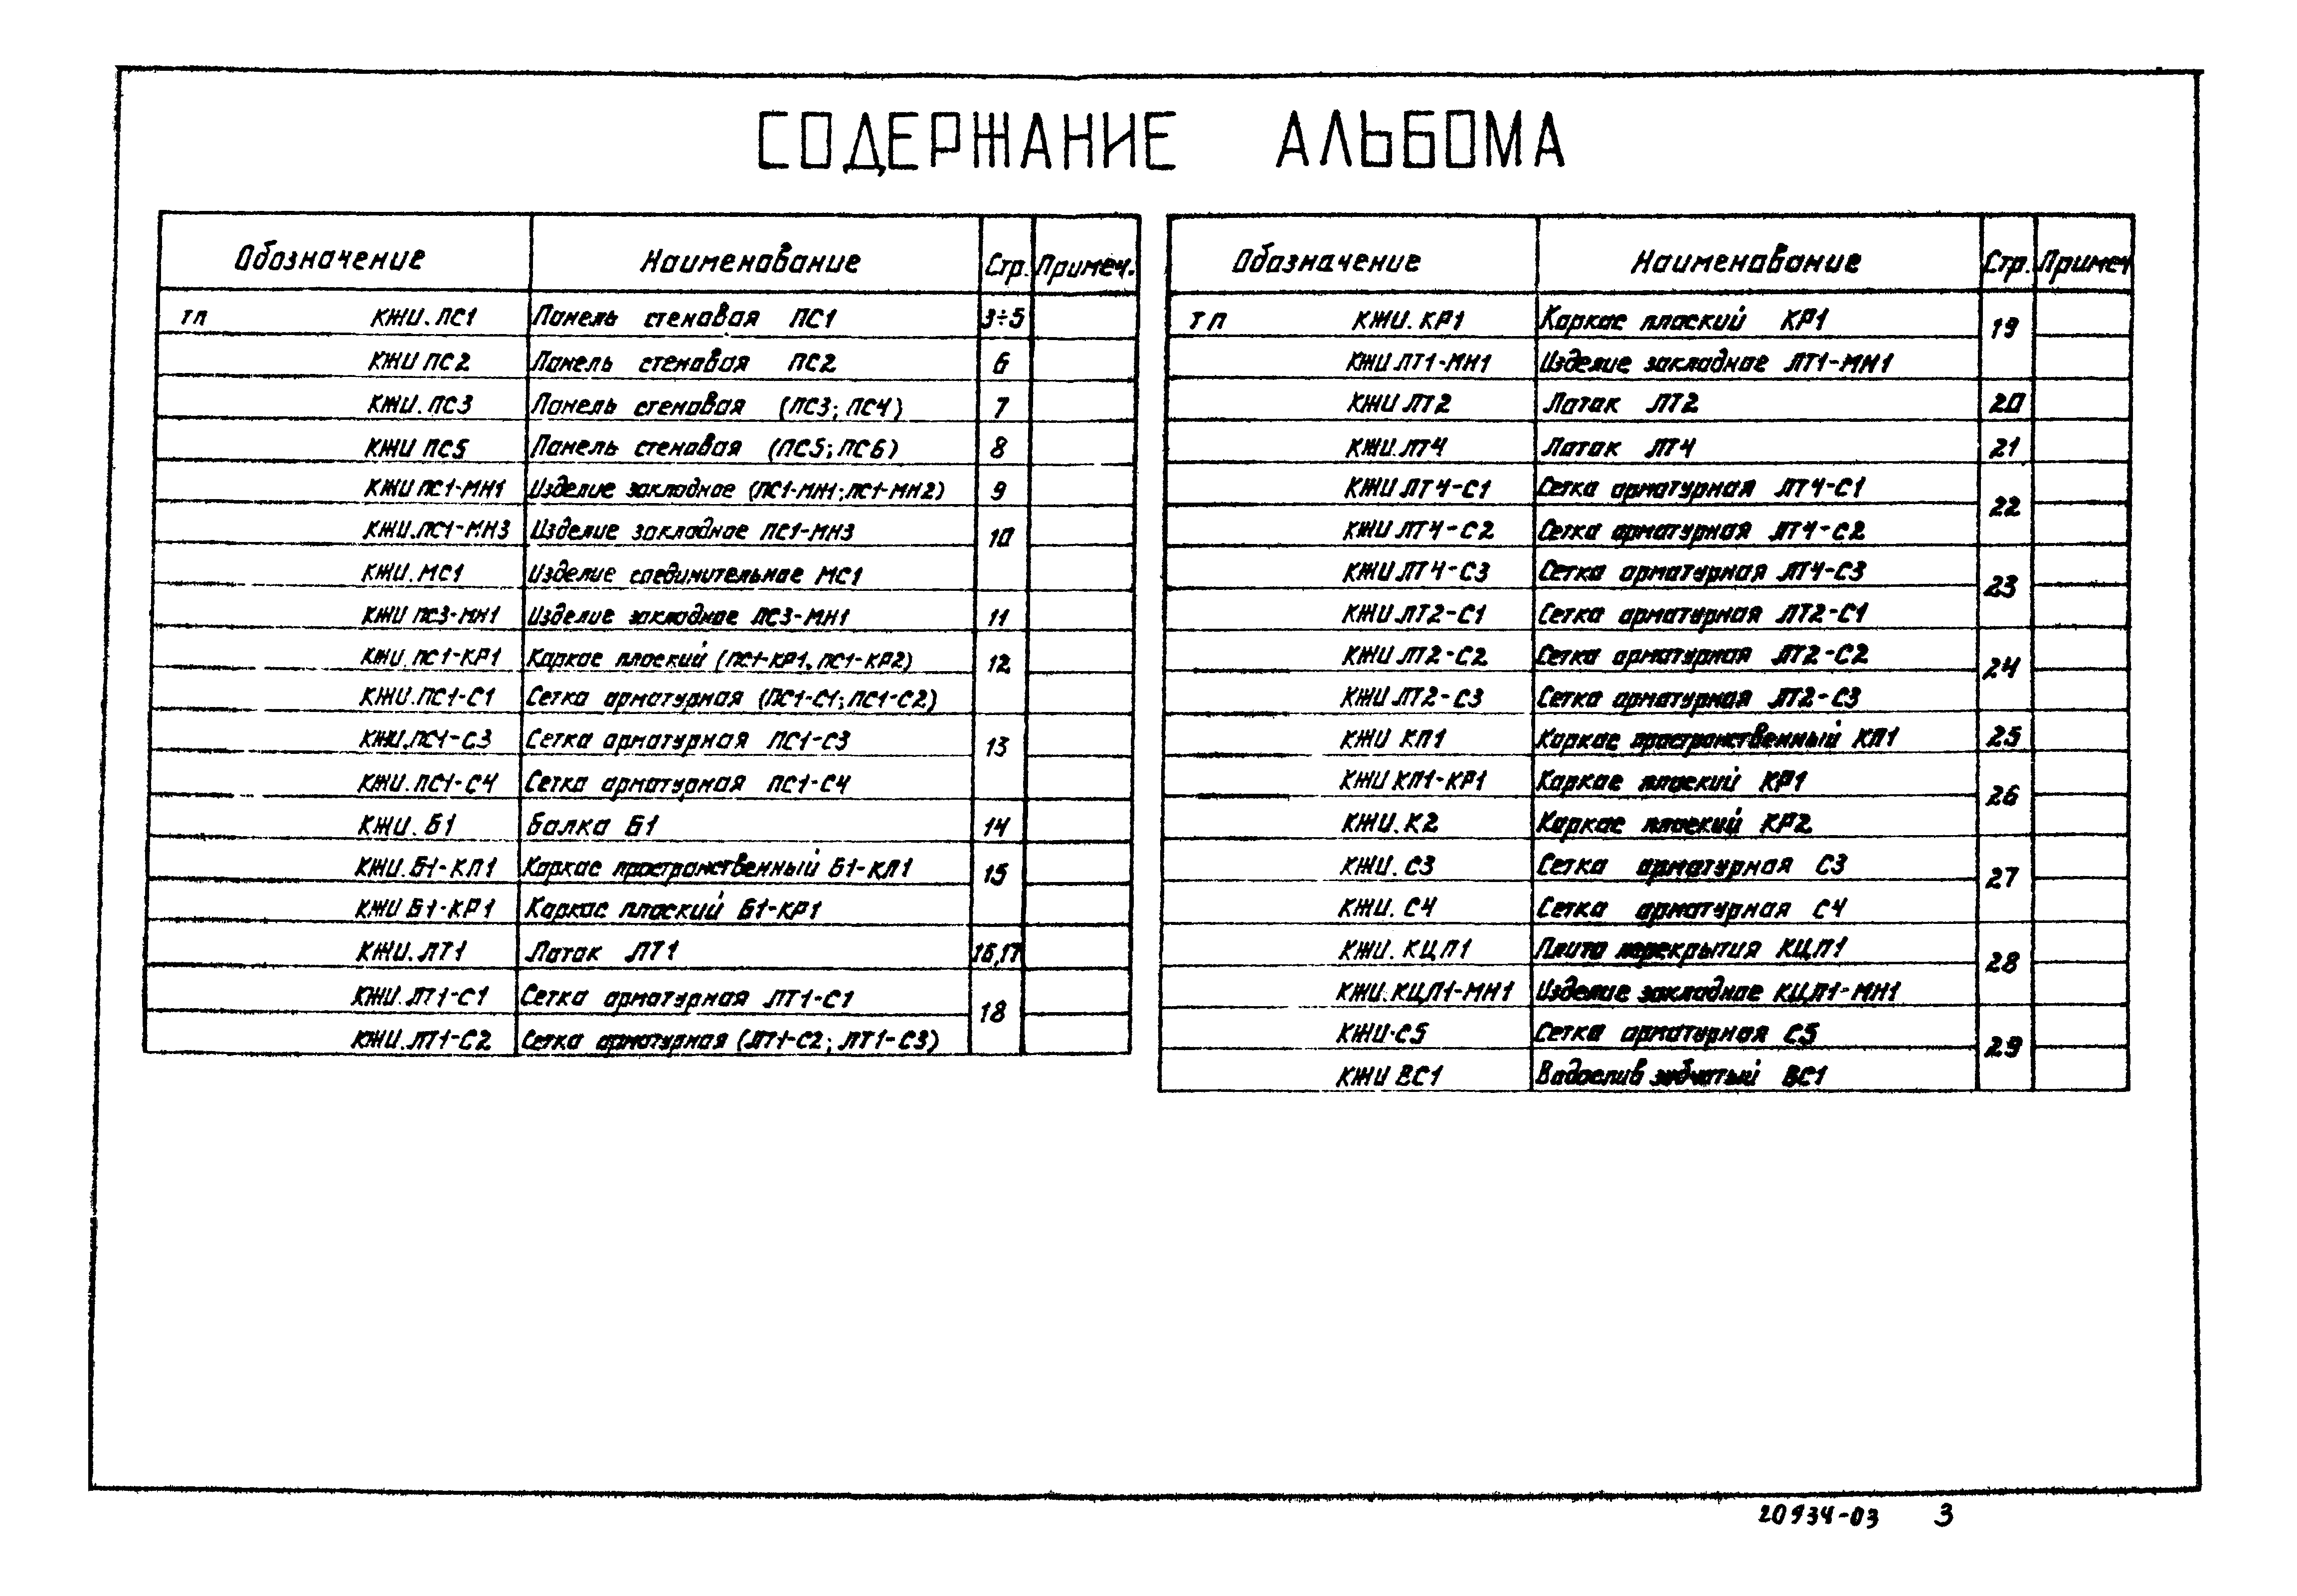 СОДЕРЖАНИЕ АЛЬБОМА
Обозначение Наименование Стр. Примеч.
ТП КЖИ.ПС1 Панель стеновая ПС1 3÷5
КЖИ ПС2 Панель стеновая ПС2 6
КЖИ.ПС3 Панель стеновая (ПС3; ПС4) 7
КЖИ ПС5 Панель стеновая (ПС5; ПС6) 8
КЖИ ПС1-МН1 Изделие закладное (ПС1-МН1; ПС1-МН2) 9
КЖИ.ПС1-МН3 Изделие закладное ПС1-МН3 10
КЖИ.МС1 Изделие соединительное МС1
КЖИ ПС3-МН1 Изделие закладное ПС3-МН1 11
КЖИ.ПС1-КР1 Каркас плоский (ПС1-КР1, ПС1-КР2) 12
КЖИ.ПС1-С1 Сетка арматурная (ПС1-С1; ПС1-С2)
КЖИ.ПС1-С3 Сетка арматурная ПС1-С3 13
КЖИ.ПС1-С4 Сетка арматурная ПС1-С4
КЖИ.Б1 Балка Б1 14
КЖИ.Б1-КП1 Каркас пространственный Б1-КП1 15
КЖИ Б1-КР1 Каркас плоский Б1-КР1
КЖИ.ЛТ1 Лоток ЛТ1 16,17
КЖИ.ЛТ1-С1 Сетка арматурная ЛТ1-С1 18
КЖИ.ЛТ1-С2 Сетка арматурная (ЛТ1-С2; ЛТ1-С3)
Обозначение Наименование Стр. Примеч
ТП КЖИ.КР1 Каркас плоский КР1 19
КЖИ ЛТ1-МН1 Изделие закладное ЛТ1-МН1
КЖИ ЛТ2 Лоток ЛТ2 20
КЖИ.ЛТ4 Лоток ЛТ4 21
КЖИ ЛТ4-С1 Сетка арматурная ЛТ4-С1 22
КЖИ ЛТ4-С2 Сетка арматурная ЛТ4-С2
КЖИ ЛТ4-С3 Сетка арматурная ЛТ4-С3 23
КЖИ.ЛТ2-С1 Сетка арматурная ЛТ2-С1
КЖИ ЛТ2-С2 Сетка арматурная ЛТ2-С2 24
КЖИ ЛТ2-С3 Сетка арматурная ЛТ2-С3
КЖИ КП1 Каркас пространственный КП1 25
КЖИ КП1-КР1 Каркас плоский КР1 26
КЖИ.К2 Каркас плоский КР2
КЖИ.С3 Сетка арматурная С3 27
КЖИ.С4 Сетка арматурная С4
КЖИ.КЦП1 Плита перекрытия КЦП1 28
КЖИ.КЦП1-МН1 Изделие закладное КЦП1-МН1
КЖИ.С5 Сетка арматурная С5 29
КЖИ ВС1 Водослив зубчатый ВС1
20934-03 3